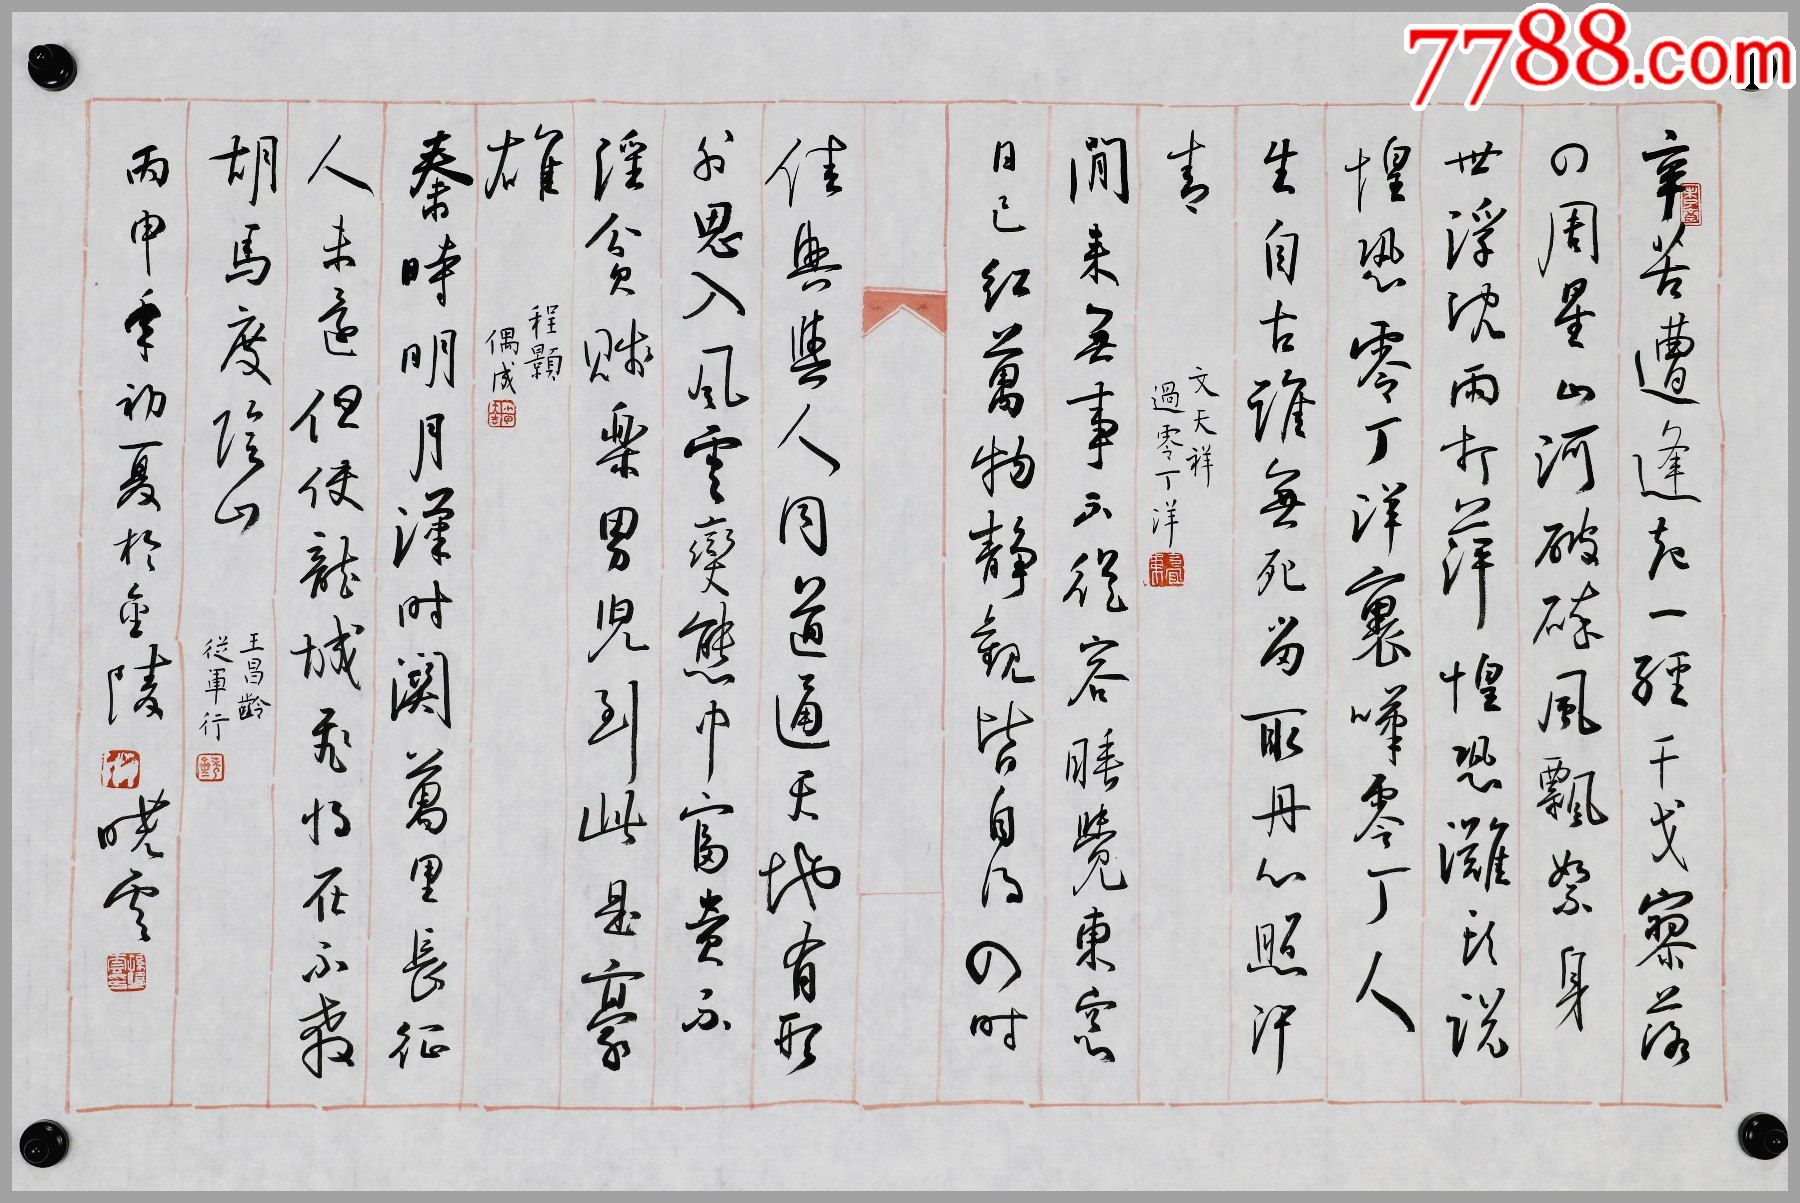 7788.com
辛苦遭逢起一經干戈寥落
四周星山河破碎風飄絮身
世浮沈雨打萍惶恐灘頭說
惶恐零丁洋裏嘆零丁人
生自古誰無死留取丹心照汗
青
文天祥
過零丁洋
閒來無事不從容睡覺東窗
日已紅萬物靜觀皆自得四時
佳興與人同道通天地有形
外思入風雲變態中富貴不
淫貧賤樂男兒到此是豪
雄
程顥
偶成
秦時明月漢時関萬里長征
人未還但使龍城飛將在不教
胡馬度陰山
王昌齡
從軍行
丙申年初夏於金陵 曉雲